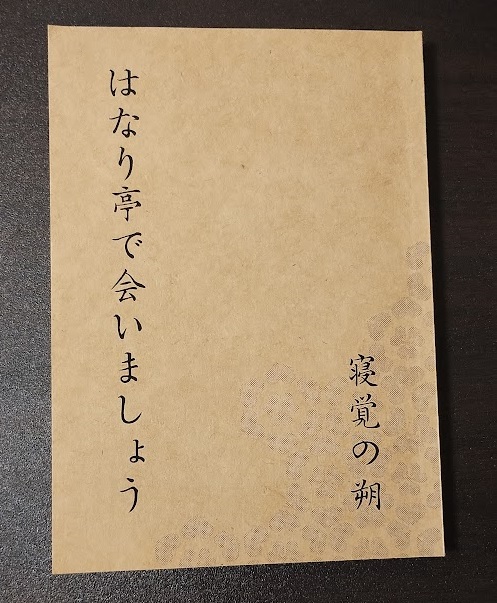 寝覚の朔
はなり亭で会いましょう